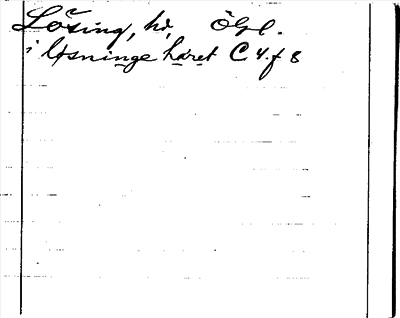 Lösing, hd, Ögl.
i løsninge häret C 4. f 8